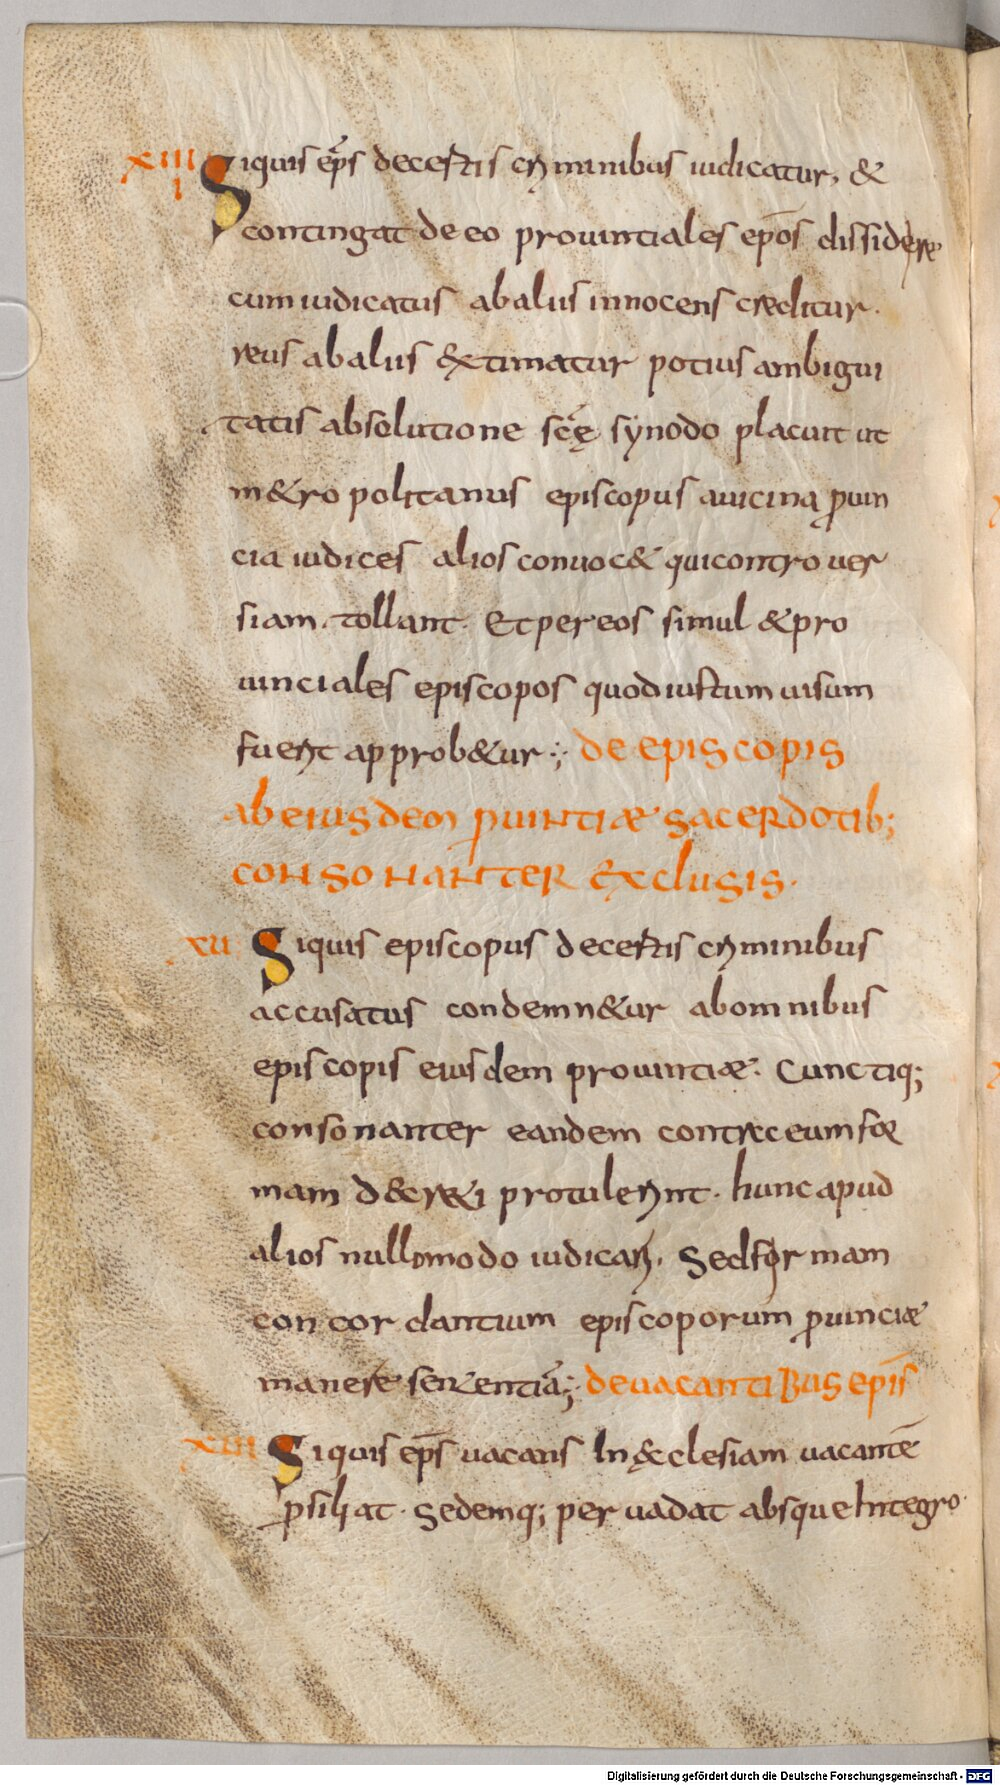 XIIII Siquis ep̅s decertis criminibus iudicatur, &
contingat de eo prouintiales epos̅ dissidere
cum iudicatus abaliis innocens creditur.
reus abaliis extimatur potius ambigui
tatis absolutione sc̅ę synodo placuit ut
m&ropolitanus episcopus auicina ꝓuin
cia iudices alios conuoc& qui controuer
siam. tollant. Et per eos simul & pro
uinciales episcopos quod iustum uisum
fuerit approb&ur ⁖ de episcopis
ab eiusdem ꝓuintiæ sacerdotib;
consonanter exclusis.
XV Siquis episcopus decertis criminibus
accusatus condemn&ur abomnibus
episcopis eiusdem prouintiæ. Cunctiq;
consonanter eandem contra eum for
mam decreti protulerint. hunc apud
alios nullomodo iudicari. Sed for mam
concordantium episcoporum ꝓuinciæ
manere sententiā; de uacantibus epis̅
XVI Siquis ep̅s uacans In ęcclesiam uacantē
ꝓsiliat. sedemq; peruadat absque Integro